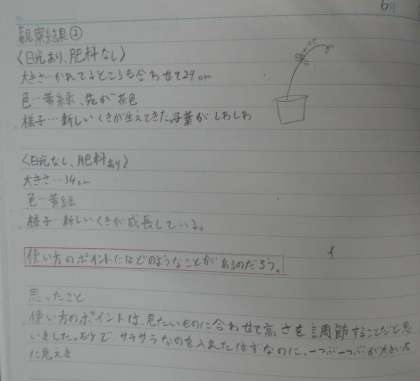 6/1
観察結果②
〈日光あり、肥料なし〉
大きさ…かれてるところも合わせて29cm
色…黄緑、茎が茶色
様子…新しいくきが生えてきた。子葉がしわしわ
〈日光なし、肥料あり〉
大きさ…14cm
色…黄緑
様子…新しいくきが成長している。
使い方のポイントにはどのようなことがあるのだろう。
思ったこと
使い方のポイントは、見たいものに合わせて高さを調節することだと思
いました。サラサラなのを入れたはずなのに、一つぶ一つぶが大きい石
に見えま